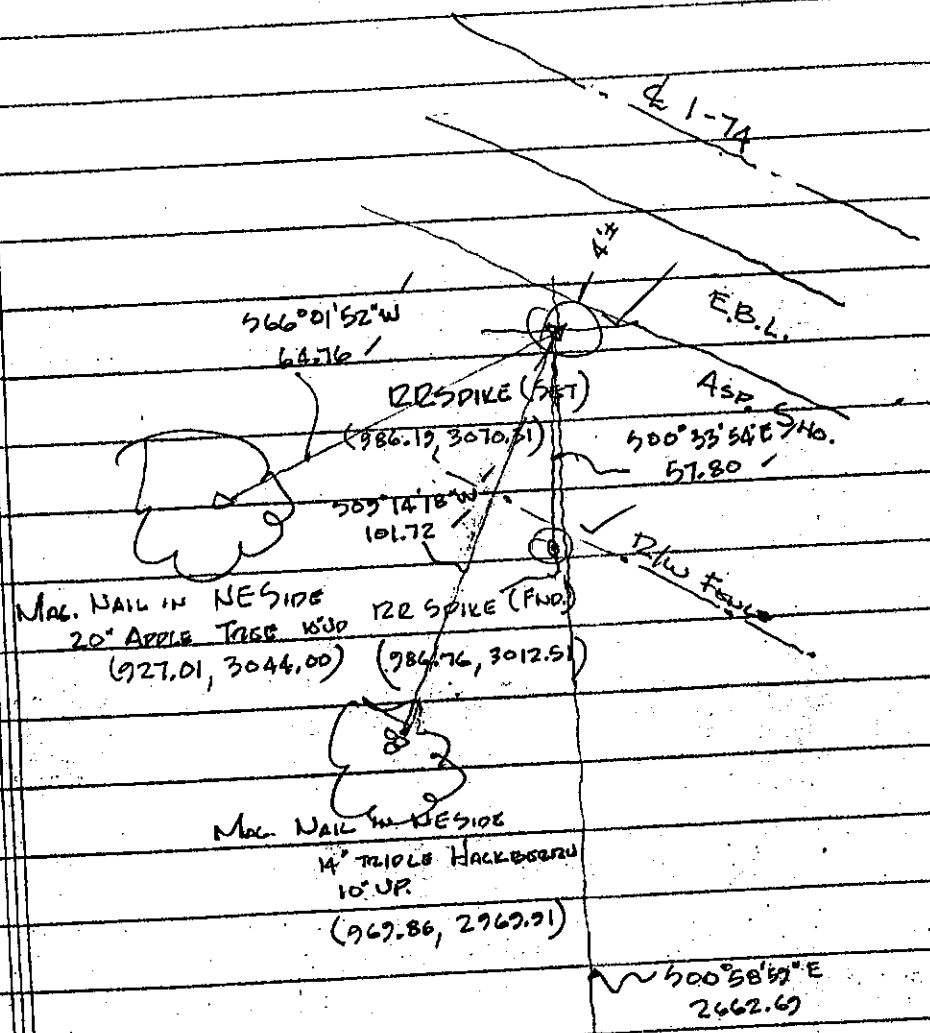 ℄ I-74
4'±
E.B.L.
ASP. SHO.
S66°01'52"W
64.76
RR SPIKE (SET)
(986.19, 3070.31)
S00°33'54"E
57.80
S09°14'18"W
101.72
R/W FENCE
MAG. NAIL IN NE SIDE
20" APPLE TREE 10" UP
(927.01, 3044.00)
RR SPIKE (FND.)
(986.76, 3012.51)
MAG. NAIL IN NE SIDE
14" TRIPLE HACKBERRY
10" UP.
(969.86, 2969.91)
S00°58'59"E
2662.69